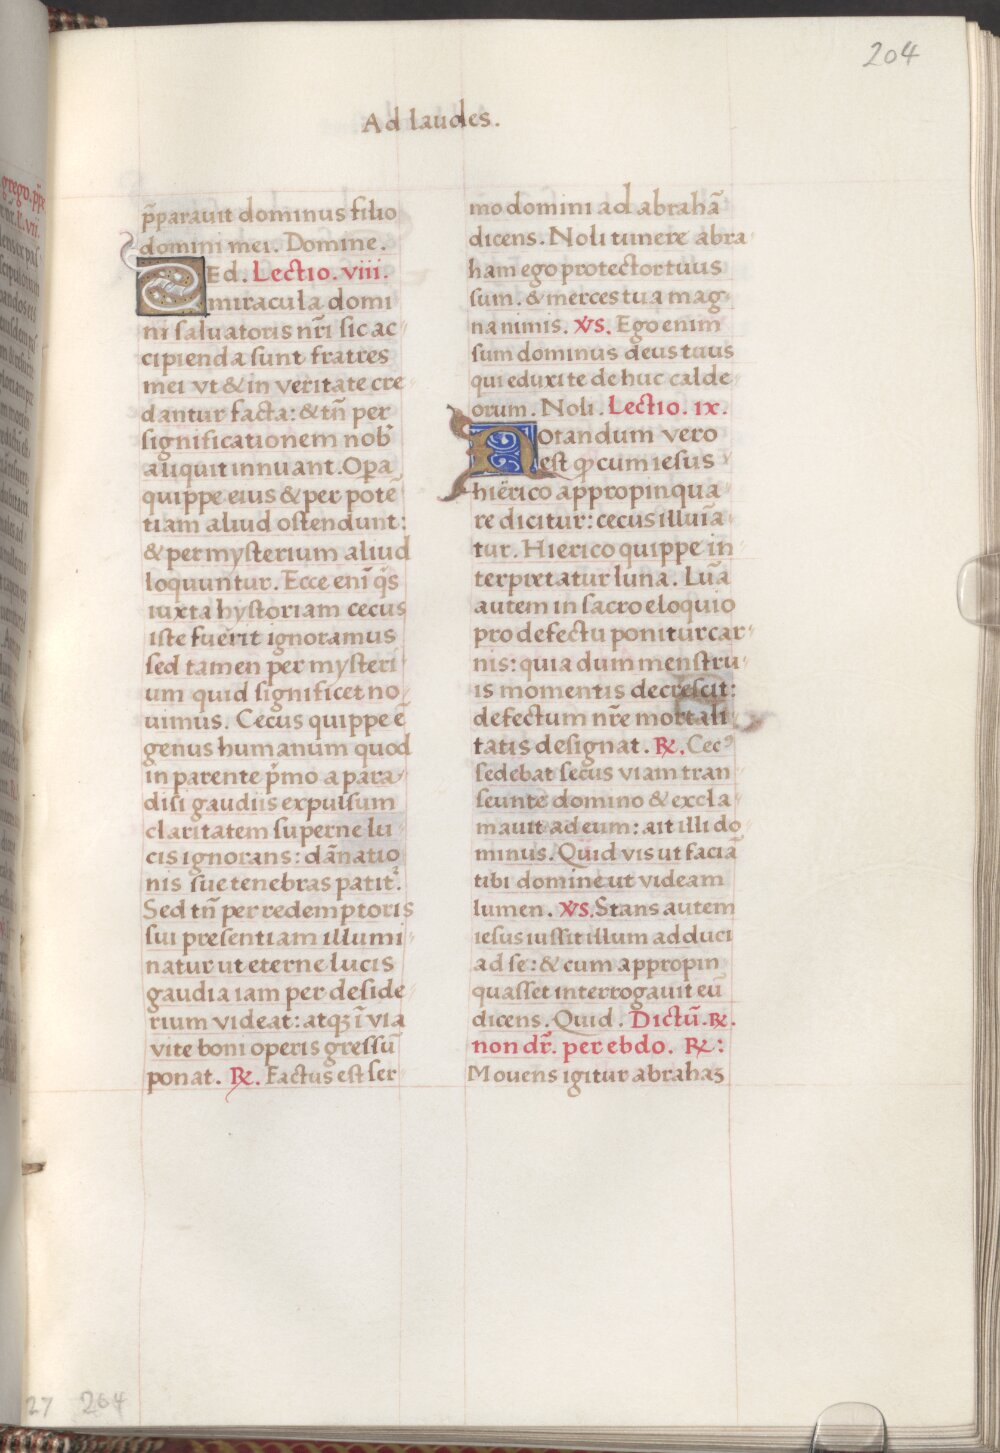 204
Ad laudes.
p̄parauit dominus filio
domini mei. Domine.
SEd. Lectio. viii.
miracula domi
ni saluatoris nr̄i sic ac
cipienda sunt fratres
mei vt & in veritate cre
dantur facta: & tn̄ per
significationem nob̉
aliquit innuant. Oꝑa
quippe eius & per potē
tiam aliud ostendunt:
& per mysterium aliud
loquuntur. Ecce enī q̉s
iuxta hystoriam cecus
iste fuerit ignoramus
sed tamen per mysteri
um quid significet no
uimus. Cecus quippe ē
genus humanum quod
in parente p̉mo a para
disi gaudiis expulsum
claritatem superne lu
cis ignorans: dānatio
nis sue tenebras patit̉.
Sed tn̄ per redemptoris
sui presentiam illumi
natur ut eterne lucis
gaudia iam per deside
rium videat: atqꝫ ī via
vite boni operis gressū
ponat. ℞. Factus est ser
mo domini ad abrahā
dicens. Noli timere abra
ham ego protector tuus
sum. & merces tua mag
na nimis. VS. Ego enim
sum dominus deus tuus
qui eduxi te de huc calde
orum. Noli. Lectio. ix.
Notandum vero
est ꝙ cum iesus
hierico appropinqua
re dicitur: cecus illuīa
tur. Hierico quippe in
terpretatur luna. Lūa
autem in sacro eloquio
pro defectu ponitur car
nis: quia dum menstru
is momentis decrescit:
defectum nr̄e mortali
tatis designat. ℞. Cecꝰ
sedebat secus viam tran
seunte domino & excla
mauit ad eum: ait illi do
minus. Quid vis ut faciā
tibi domine ut videam
lumen. VS. Stans autem
iesus iussit illum adduci
ad se: & cum appropin
quasset interrogauit eū
dicens. Quid. Dictū. ℞.
non dr̄. per ebdo. ℞:
Mouens igitur abrahaꝫ
27 264